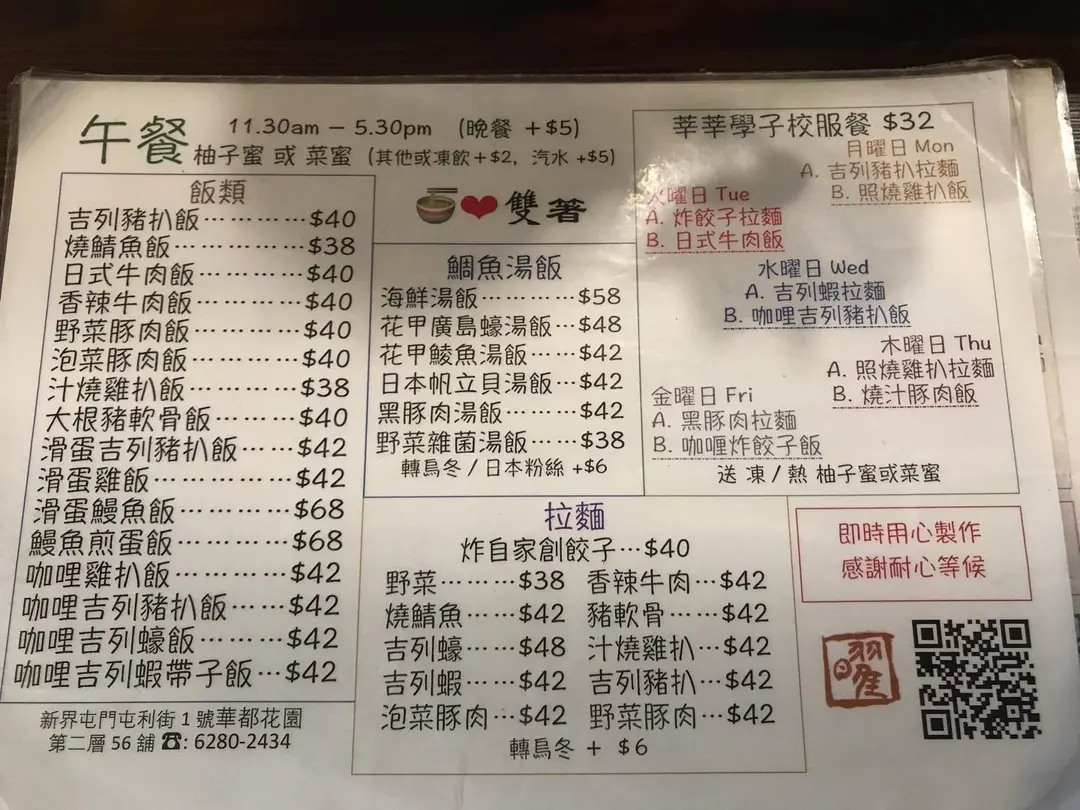 午餐 11.30am – 5.30pm (晚餐 +$5)
柚子蜜 或 菜蜜 (其他或凍飲+$2, 汽水 +$5)
飯類
吉列豬扒飯…………$40
燒鯖魚飯……………$38
日式牛肉飯…………$40
香辣牛肉飯…………$40
野菜豚肉飯…………$40
泡菜豚肉飯…………$40
汁燒雞扒飯…………$38
大根豬軟骨飯………$40
滑蛋吉列豬扒飯……$42
滑蛋雞飯……………$42
滑蛋鰻魚飯…………$68
鰻魚煎蛋飯…………$68
咖哩雞扒飯…………$42
咖哩吉列豬扒飯……$42
咖哩吉列蠔飯………$42
咖哩吉列蝦帶子飯…$42
新界屯門屯利街 1 號華都花園
第二層 56 舖 ☎: 6280-2434
雙箸
鯛魚湯飯
海鮮湯飯…………$58
花甲廣島蠔湯飯…$48
花甲鯪魚湯飯……$42
日本帆立貝湯飯…$42
黑豚肉湯飯………$42
野菜雜菌湯飯……$38
轉烏冬 / 日本粉絲 +$6
拉麵
炸自家創餃子…$40
野菜………$38 香辣牛肉…$42
燒鯖魚……$42 豬軟骨……$42
吉列蠔……$48 汁燒雞扒…$42
吉列蝦……$42 吉列豬扒…$42
泡菜豚肉…$42 野菜豚肉…$42
轉烏冬 + $6
莘莘學子校服餐 $32
月曜日 Mon
A. 吉列豬扒拉麵
B. 照燒雞扒飯
火曜日 Tue
A. 炸餃子拉麵
B. 日式牛肉飯
水曜日 Wed
A. 吉列蝦拉麵
B. 咖哩吉列豬扒飯
木曜日 Thu
A. 照燒雞扒拉麵
B. 燒汁豚肉飯
金曜日 Fri
A. 黑豚肉拉麵
B. 咖喱炸餃子飯
送 凍 / 熱 柚子蜜或菜蜜
即時用心製作
感謝耐心等候
曜